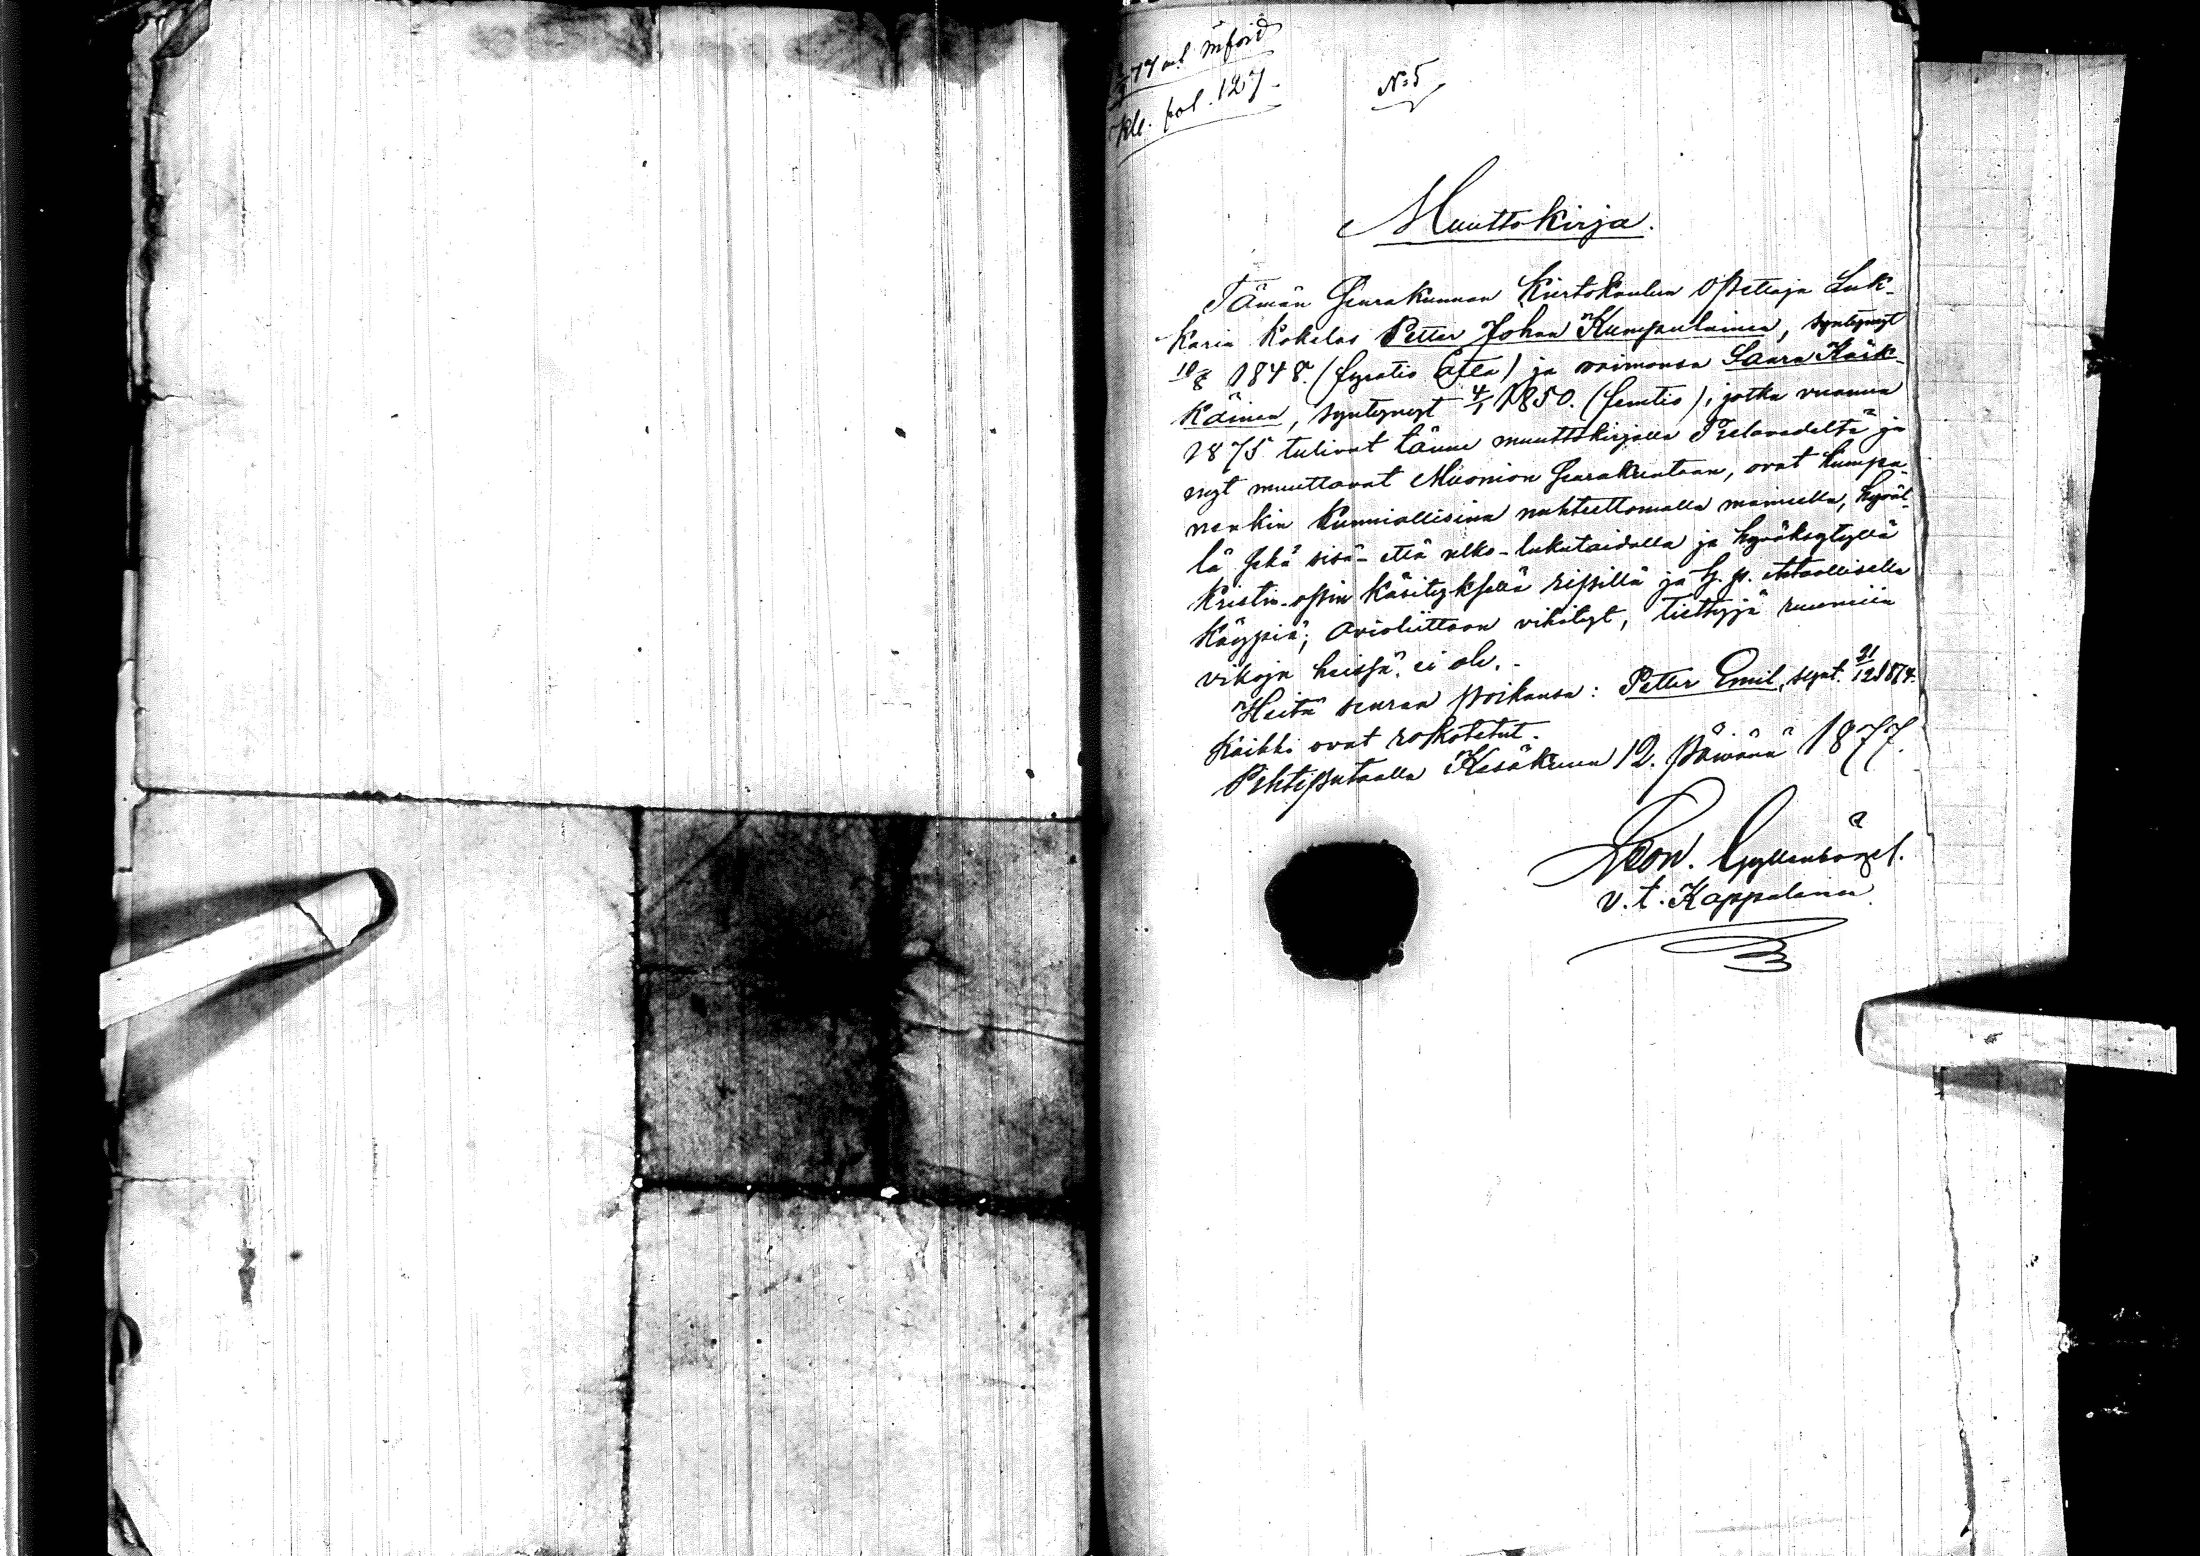 77 införd
pol. 127.
N:5
Muuttokirja.
Tämän Seurakunnan Kiertokoulun Opettaja Luk-
karin kokelas Petter Johan Kumpulainen, syntynyt
10/8 1848. (fyratio åtta) ja vaimonsa Saara Kärk-
käinen, syntynyt 4/1 1850. (femtio), jotka vuonna
1875 tulivat tänne muuttokirjalla Pielavedeltä ja
nyt muuttavat Muonion Seurakuntaan, ovat kumpa-
nenkin kunniallisina nuhteettomalla maineella, hyväl-
lä sekä sisä- että ulko-lukutaidolla ja hyväksytyllä
kristin-opin käsityksellä ripillä ja h. p. ehtoollisella
käypiä; avioliittoon vihityt, tiettyjä ruumiin
vikoja heissä ei ole. -
Heitä seuraa poikansa: Petter Emil, synt. 21/12 1874.
Kaikki ovat rokotetut.
Pihtiputaalla Kesäkuun 12. päivänä 1877.
Leon. Gyllenbögel.
v. t. Kappalainen